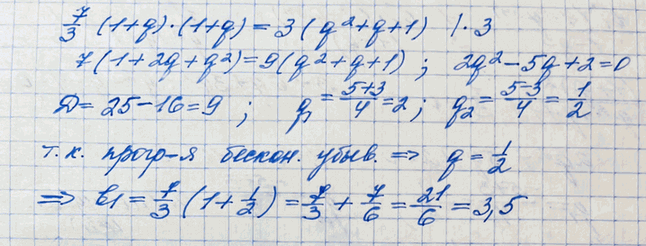 7/3 (1+q)·(1+q) = 3(q²+q+1) |·3
7(1+2q+q²)=9(q²+q+1) ; 2q²-5q+2=0
Д=25-16=9 ; q₁=(5+3)/4=2 ; q₂=(5-3)/4=1/2
т.к. прогр-я бескон. убыв. => q=1/2
=> b₁=7/3(1+1/2)=7/3+7/6=21/6=3,5